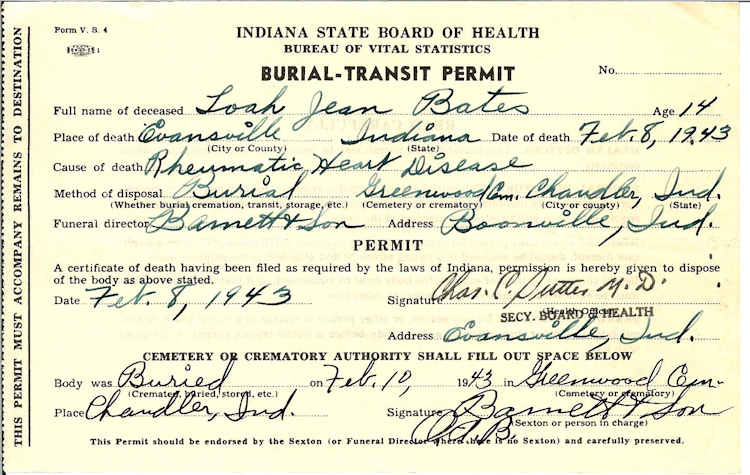 Form V. S. 4
INDIANA STATE BOARD OF HEALTH
BUREAU OF VITAL STATISTICS
BURIAL-TRANSIT PERMIT
No.
Full name of deceased Loah Jean Bates Age 14
Place of death Evansville Indiana Date of death Feb. 8, 1943
(City or County) (State)
Cause of death Rheumatic Heart Disease
Method of disposal Burial Greenwood Cem. Chandler, Ind.
(Whether burial, cremation, transit, storage, etc.) (Cemetery or crematory) (City or county) (State)
Funeral director Barnett & Son Address Boonville, Ind.
PERMIT
A certificate of death having been filed as required by the laws of Indiana, permission is hereby given to dispose
of the body as above stated.
Date Feb. 8, 1943 Signature Chas. C. Sutter M. D.
Health Officer
SECY. BOARD OF HEALTH
Address Evansville, Ind.
CEMETERY OR CREMATORY AUTHORITY SHALL FILL OUT SPACE BELOW
Body was Buried on Feb. 10, 1943 in Greenwood Cem.
(Cremated, buried, stored, etc.) (Cemetery or crematory)
Place Chandler, Ind. Signature Barnett & Son
(Sexton or person in charge)
This Permit should be endorsed by the Sexton (or Funeral Director where there is no Sexton) and carefully preserved.
THIS PERMIT MUST ACCOMPANY REMAINS TO DESTINATION